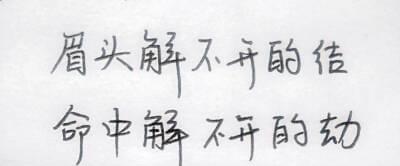 眉头解不开的结
命中解不开的劫